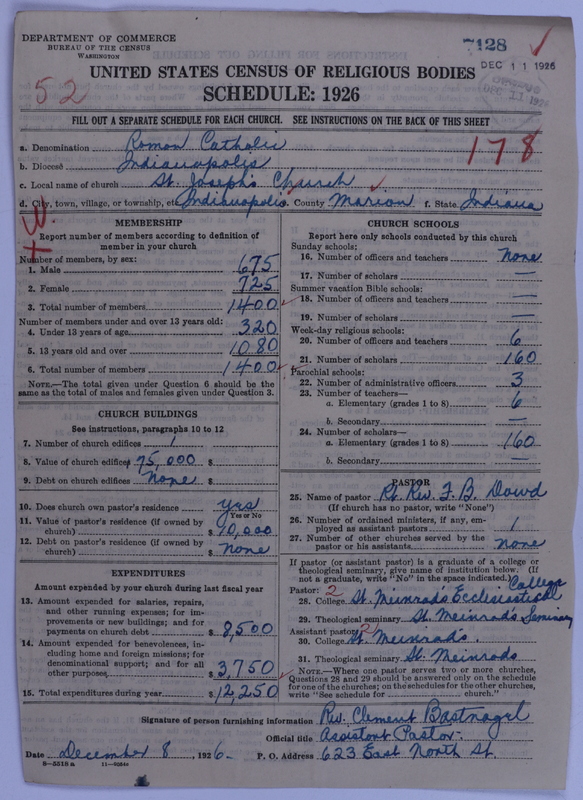 DEPARTMENT OF COMMERCE
BUREAU OF THE CENSUS
WASHINGTON
7128
DEC 11 1926
UNITED STATES CENSUS OF RELIGIOUS BODIES
SCHEDULE: 1926
52
FILL OUT A SEPARATE SCHEDULE FOR EACH CHURCH. SEE INSTRUCTIONS ON THE BACK OF THIS SHEET
178
a. Denomination Roman Catholic
b. Diocese Indianapolis
c. Local name of church St. Joseph's Church
d. City, town, village, or township, etc. Indianapolis e. County Marion f. State Indiana
MEMBERSHIP
Report number of members according to definition of
member in your church
Number of members, by sex:
1. Male 675
2. Female 725
3. Total number of members 1400
Number of members under and over 13 years old:
4. Under 13 years of age 320
5. 13 years old and over 1080
6. Total number of members 1400
NOTE.—The total given under Question 6 should be the
same as the total of males and females given under Question 3.
CHURCH BUILDINGS
See instructions, paragraphs 10 to 12
7. Number of church edifices 1
8. Value of church edifices 75,000 $
9. Debt on church edifices None $
10. Does church own pastor's residence yes
Yes or No
11. Value of pastor's residence (if owned by
church) $ 10,000
12. Debt on pastor's residence (if owned by
church) $ None
EXPENDITURES
Amount expended by your church during last fiscal year
13. Amount expended for salaries, repairs,
and other running expenses; for im-
provements or new buildings; and for
payments on church debt $ 8,500
14. Amount expended for benevolences, in-
cluding home and foreign missions; for
denominational support; and for all
other purposes $ 3,750
15. Total expenditures during year $ 12,250
CHURCH SCHOOLS
Report here only schools conducted by this church
Sunday schools:
16. Number of officers and teachers None
17. Number of scholars —
Summer vacation Bible schools:
18. Number of officers and teachers —
19. Number of scholars —
Week-day religious schools:
20. Number of officers and teachers 6
21. Number of scholars 160
Parochial schools:
22. Number of administrative officers 3
23. Number of teachers—
a. Elementary (grades 1 to 8) 6
b. Secondary —
24. Number of scholars—
a. Elementary (grades 1 to 8) 160
b. Secondary —
PASTOR
25. Name of pastor Rt. Rev. F. B. Dowd
(If church has no pastor, write "None")
26. Number of ordained ministers, if any, em-
ployed as assistant pastors 1
27. Number of other churches served by the
pastor or his assistants None
If pastor (or assistant pastor) is a graduate of a college or
theological seminary, give name of institution below. (If
not a graduate, write "No" in the space indicated.) College
Pastor: 2
28. College St. Meinrad's Ecclesiastical
29. Theological seminary St. Meinrad's Seminary
Assistant pastor: 2
30. College St. Meinrad's.
31. Theological seminary St. Meinrads
NOTE.—Where one pastor serves two or more churches,
Questions 28 and 29 should be answered only on the schedule
for one of the churches; on the schedules for the other churches,
write "See schedule for church."
Signature of person furnishing information Rev. Clement Bastnagel
Official title Assistant Pastor.
Date December 8, 1926. P. O. Address 623 East North St.
8—5518 a 11—90844